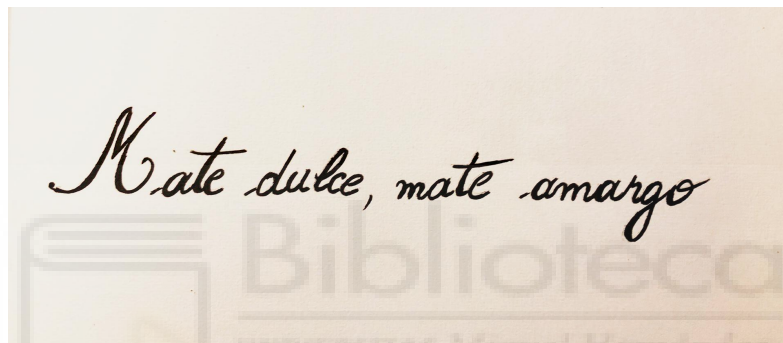 Mate dulce, mate amargo
Biblioteca